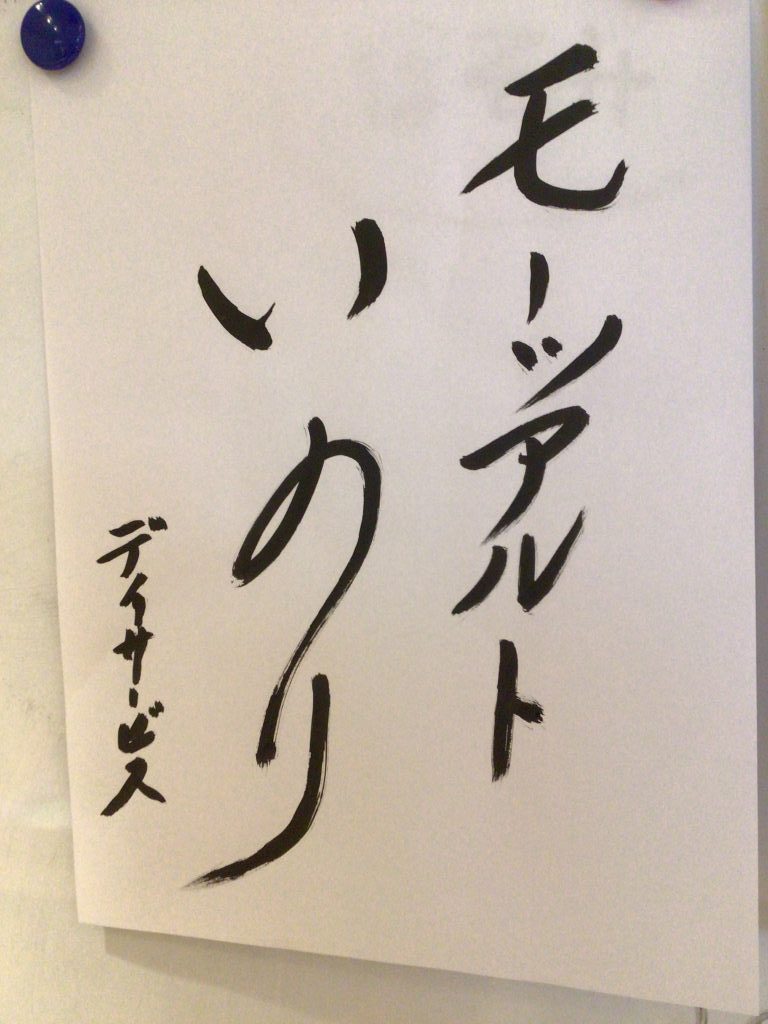 モーツアルト
いのり
デイサービス